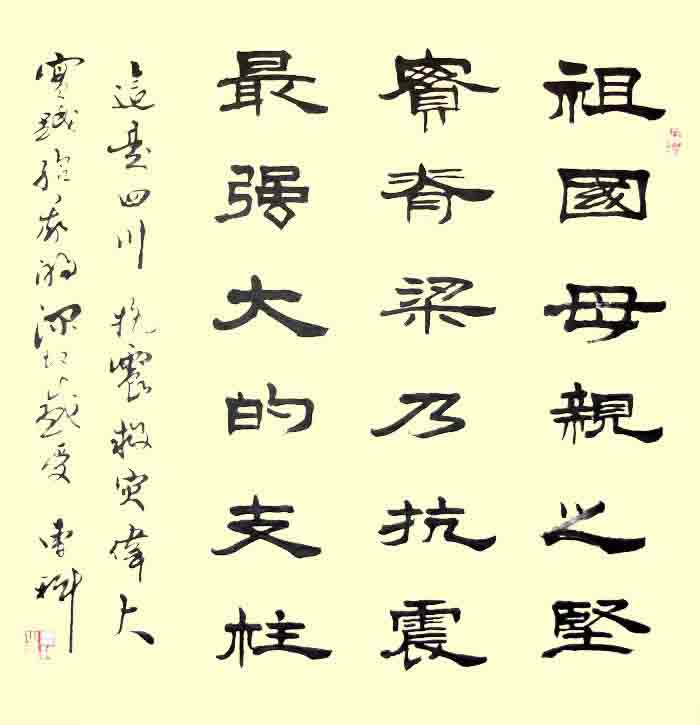 祖國母親之堅
實脊梁乃抗震
最强大的支柱
這是四川 抗震救灾偉大
實踐給我的深切感受